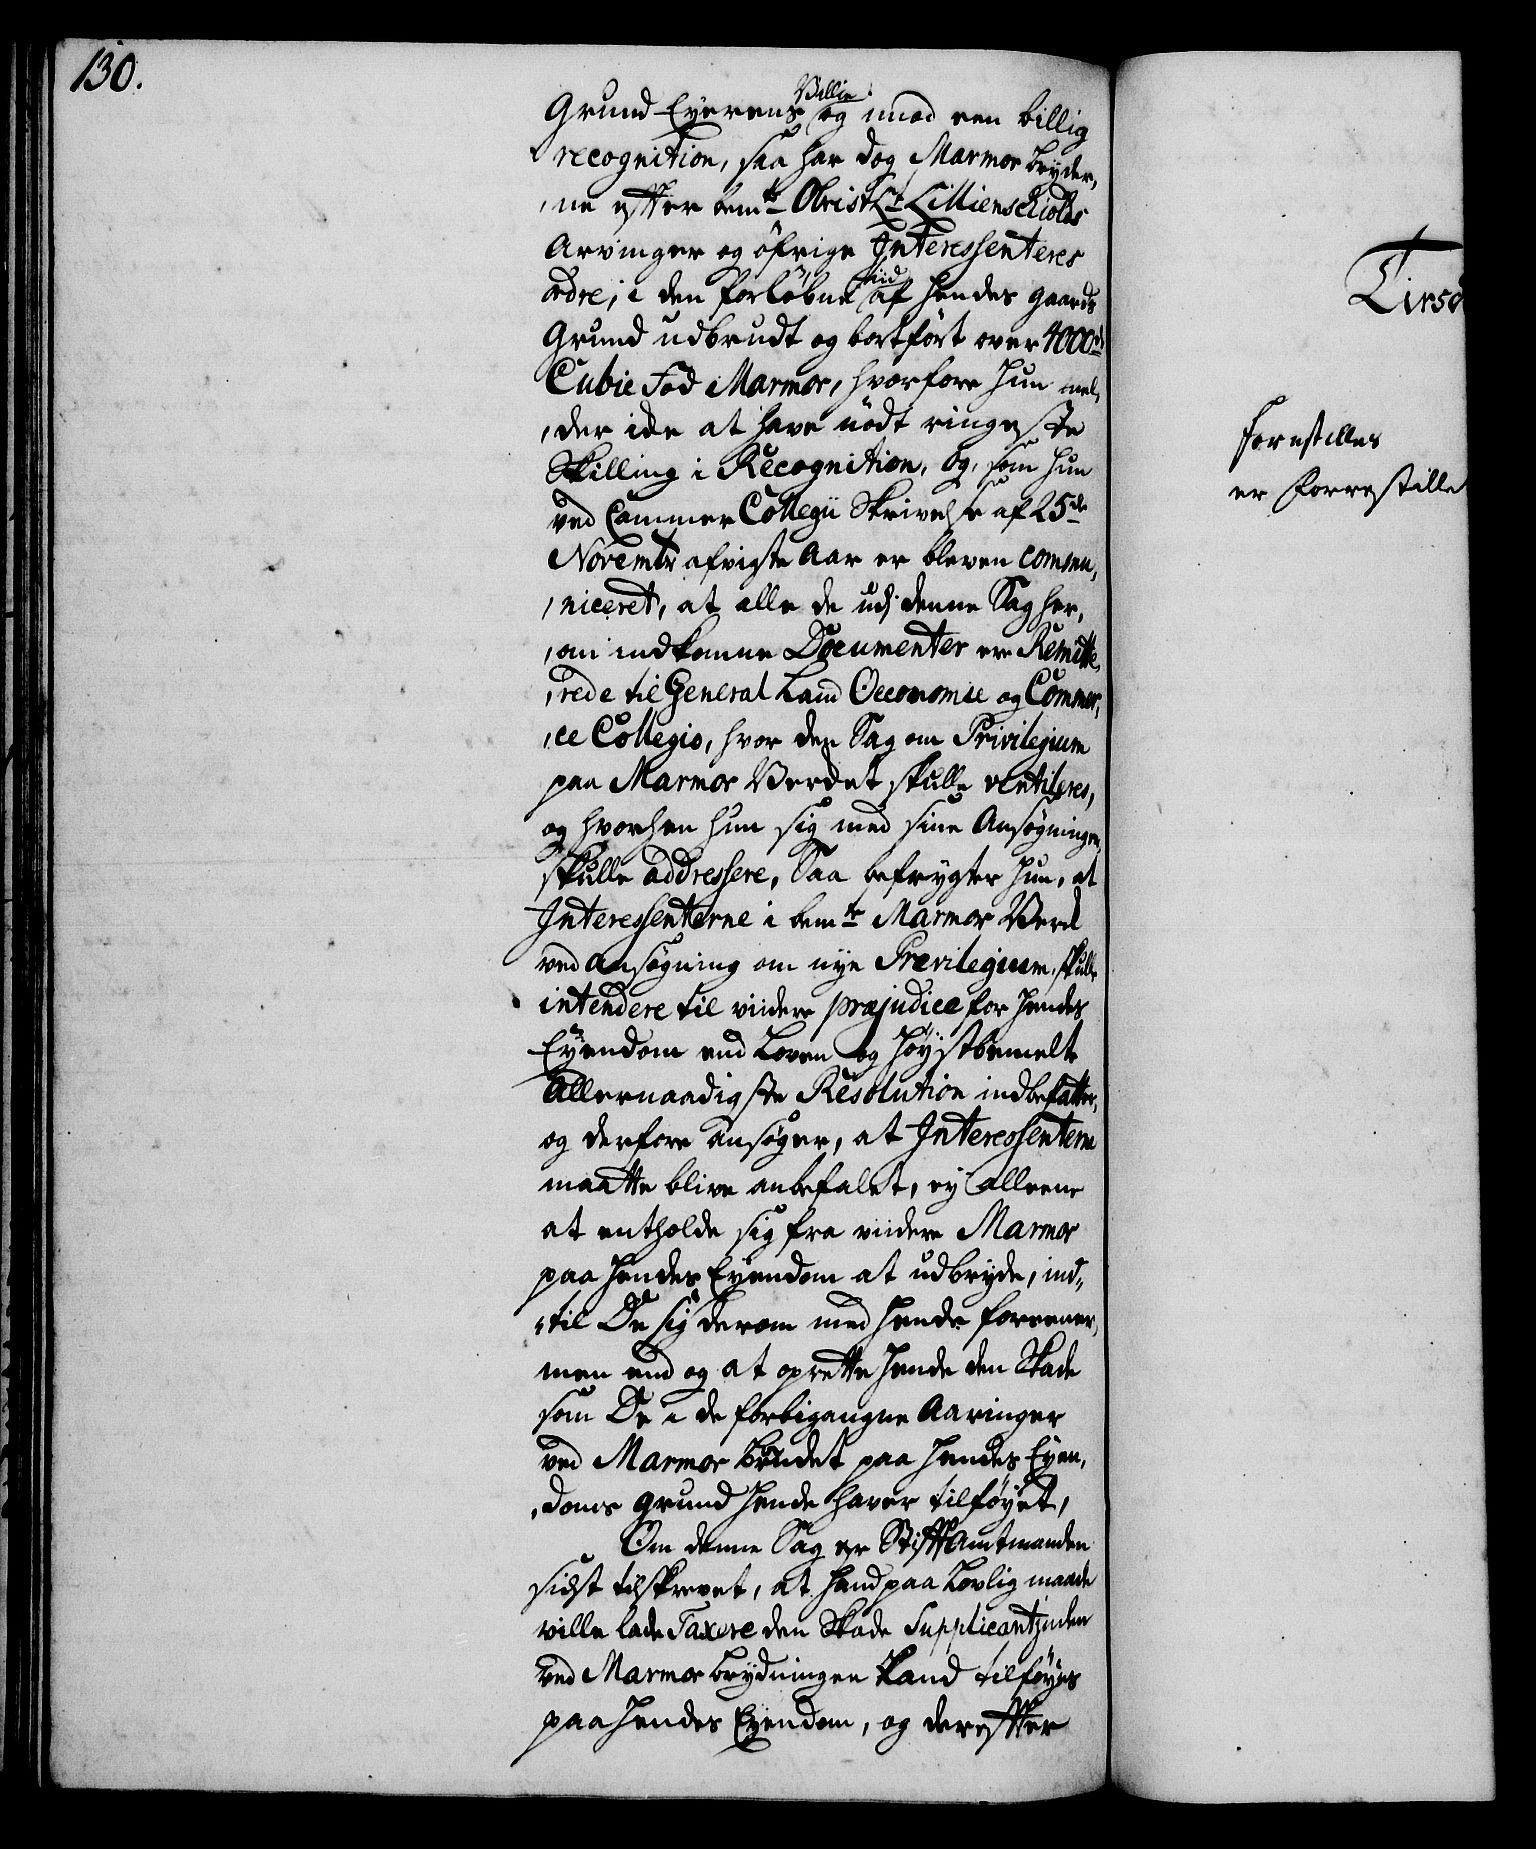 130.
Villie
Grund Eyerens og imod een billig
recognition, saa har dog Marmor bryder,
,ne efter bemte Obrist Lt Lillienschiolds
Arvinger og öfrige Interessenteres
ordre, i den forløbne tiid af hendes gaards
Grund udbrudt og bortført over 4000de
Cubic Fod Marmor, hvorfore hun mel,
,der icke at have nödt ringeste
Skilling i Recognition, og, som hun
ved Cammer Collegii Skrivelse af 25de
Novembr afvigte Aar er bleven commu,
,niceret, at alle de udi denne Sag her,
,om indkomne Documenter ere Remitte,
,rede til General Land Oeconomie og Commer,
,ce Collegio, hvor den Sag om Privilegium
paa Marmor Verdet skulle ventileres,
og hvorhen hun sig med sine Ansøgninger
skulle addressere, Saa befrygter hun, at
Interessenterne i bemte Marmor Verck
ved ansøgning om nye Prævilegium, skulle
intendere til viidere præjudice for hendes
Eyendom end Loven og Høystbemelte
allernaadigste Resolution indbefatter,
og derfore ansøger, at Interessenterne
maatte blive anbefalet, ey alleene
at entholde sig fra viidere Marmor
paa hendes Eyendom at udbryde, ind,,
,,til De sig derom med hende foreener,
men end og at oprette hende den Skade
som De i de forbigangne Aaringer
ved Marmor brudet paa hendes Eyen,
,doms grund hende haver tilføyet,
Om denne Sag er Stiftamtmanden
sidst tilskrevet, at hand paa Lovlig maade
ville lade Taxere den Skade Supplicantinden
ved Marmor brydningen kand tilføyes
paa hendes Eyendom, og derefter
Tirsd
forestilles
er forrestille